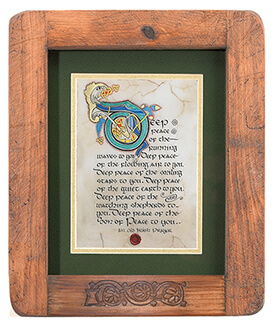 Deep
peace
of the
running
waves to you. Deep peace
of the flowing air to you.
Deep peace of the smiling
stars to you. Deep peace
of the quiet earth to you.
Deep peace of the
watching shepherds to
you. Deep peace of the
Son of Peace to you...
An Old Irish Prayer